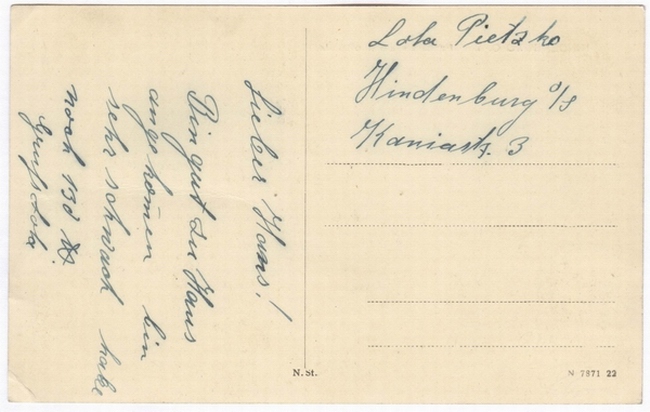 Lieber Hans!
Bin gut zu Haus
angekom̄en bin
sehr schwach habe
noch 130 ℔
Gruß Lola
Lola Pietzko
Hindenburg O/S
Kaniastr. 3
N. St.
N 7871 22